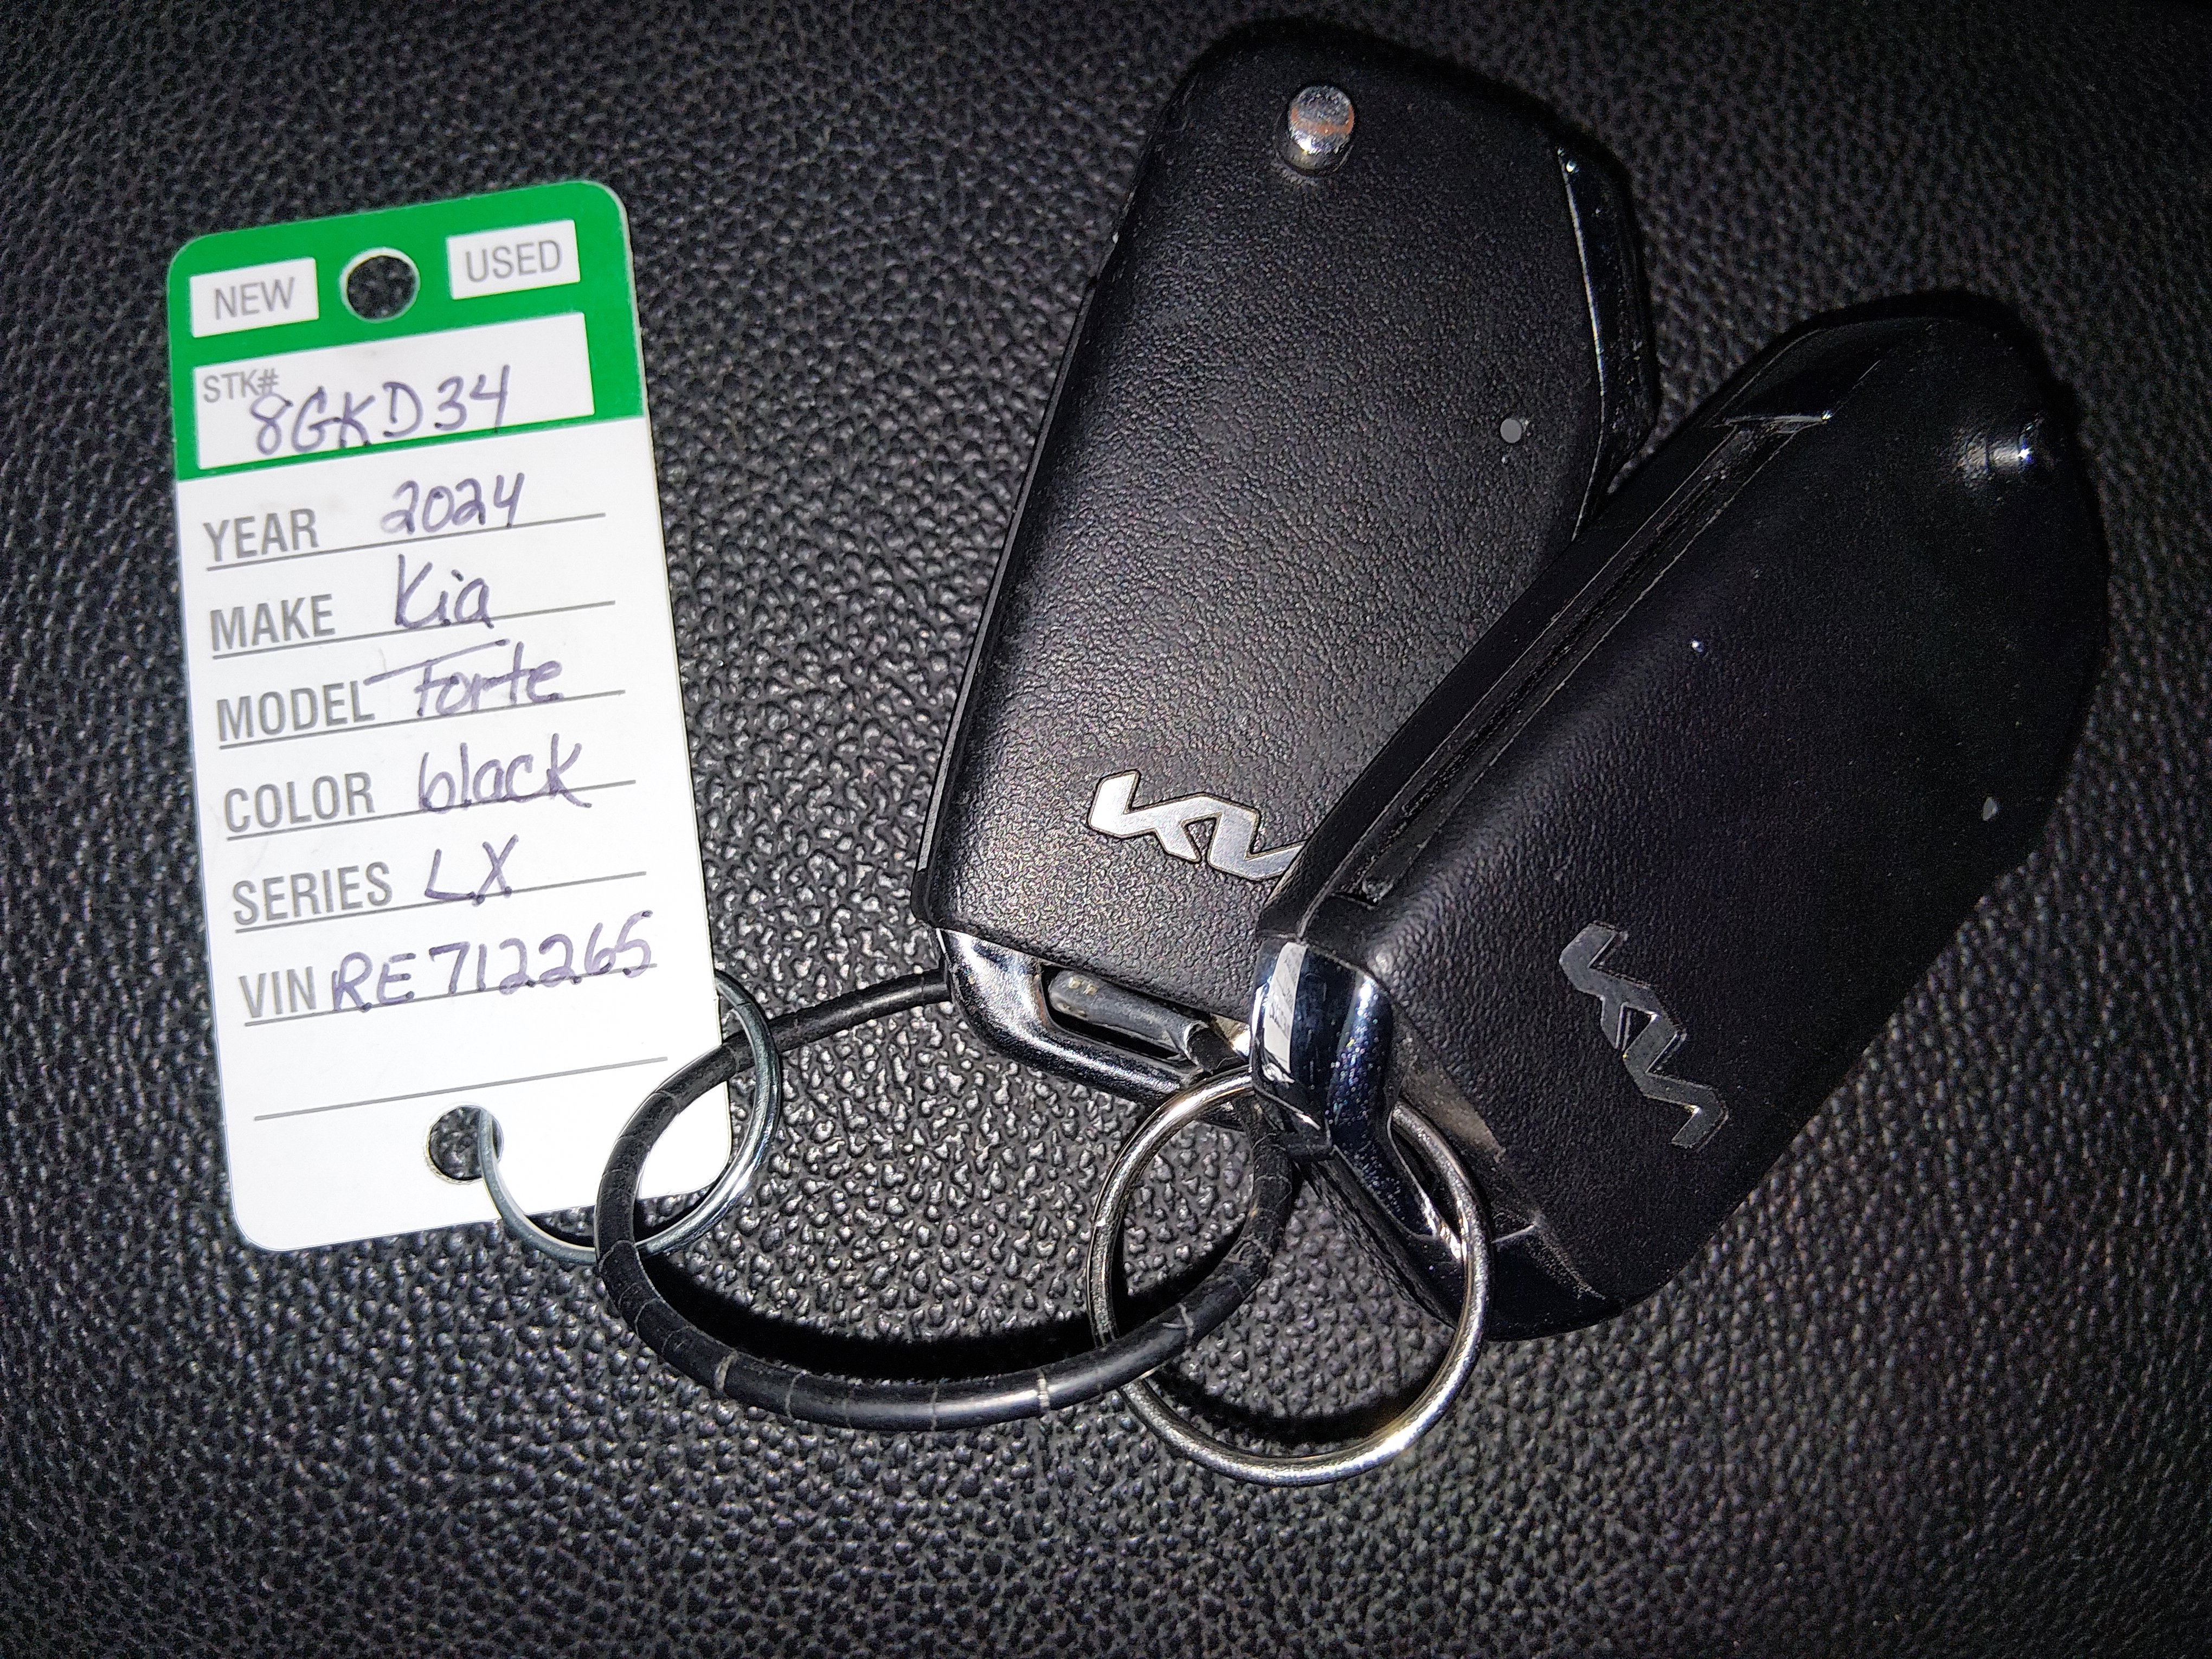 NEW USED
STK# 8GKD34
YEAR 2024
MAKE Kia
MODEL Forte
COLOR black
SERIES LX
VIN RE712265
KIA
KIA